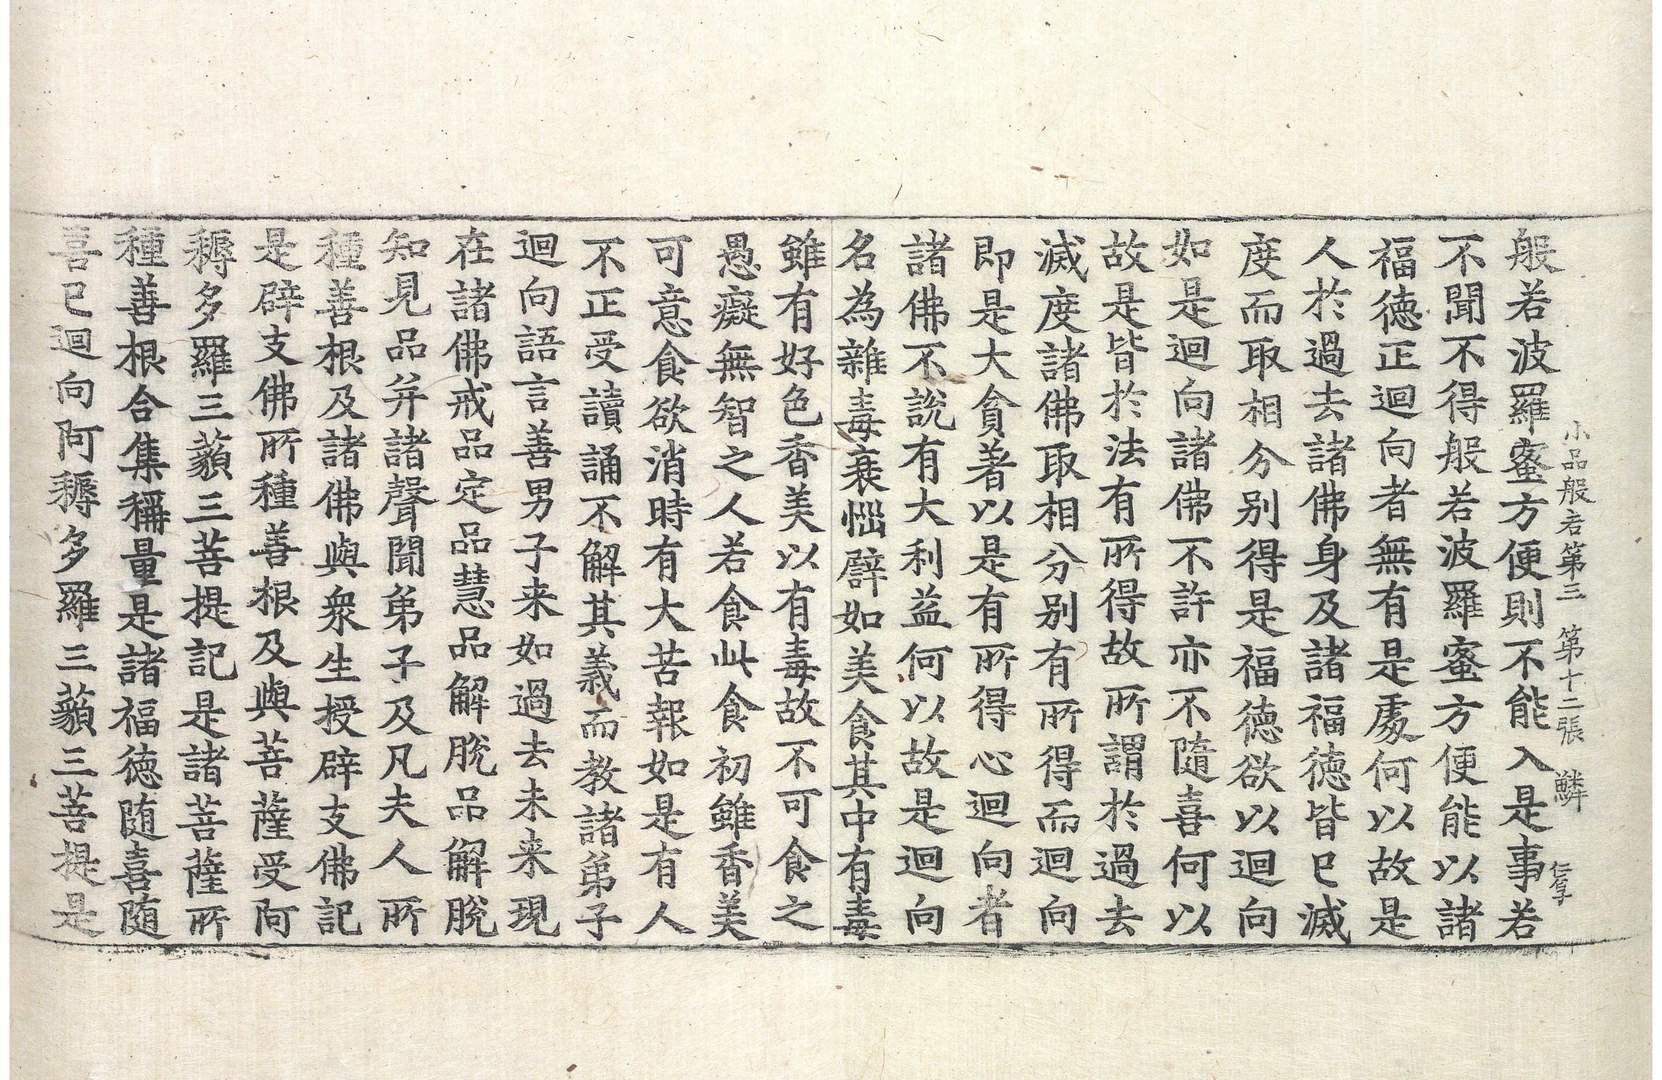 小品般若第三 第十二張 鱗
般若波羅蜜方便則不能入是事若
不聞不得般若波羅蜜方便能以諸
福德正迴向者無有是處何以故是
人於過去諸佛身及諸福德皆已滅
度而取相分別得是福德欲以迴向
如是迴向諸佛不許亦不隨喜何以
故是皆於法有所得故所謂於過去
滅度諸佛取相分別有所得而迴向
即是大貪著以是有所得心迴向者
諸佛不說有大利益何以故是迴向
名為雜毒衰惱譬如美食其中有毒
雖有好色香美以有毒故不可食之
愚癡無智之人若食此食初雖香美
可意食欲消時有大苦報如是有人
不正受讀誦不解其義而教諸弟子
迴向語言善男子来如過去未来現
在諸佛戒品定品慧品解脫品解脫
知見品并諸聲聞弟子及凡夫人所
種善根及諸佛與衆生授辟支佛記
是辟支佛所種善根及與菩薩受阿
耨多羅三藐三菩提記是諸菩薩所
種善根合集稱量是諸福德随喜随
喜已迴向阿耨多羅三藐三菩提是